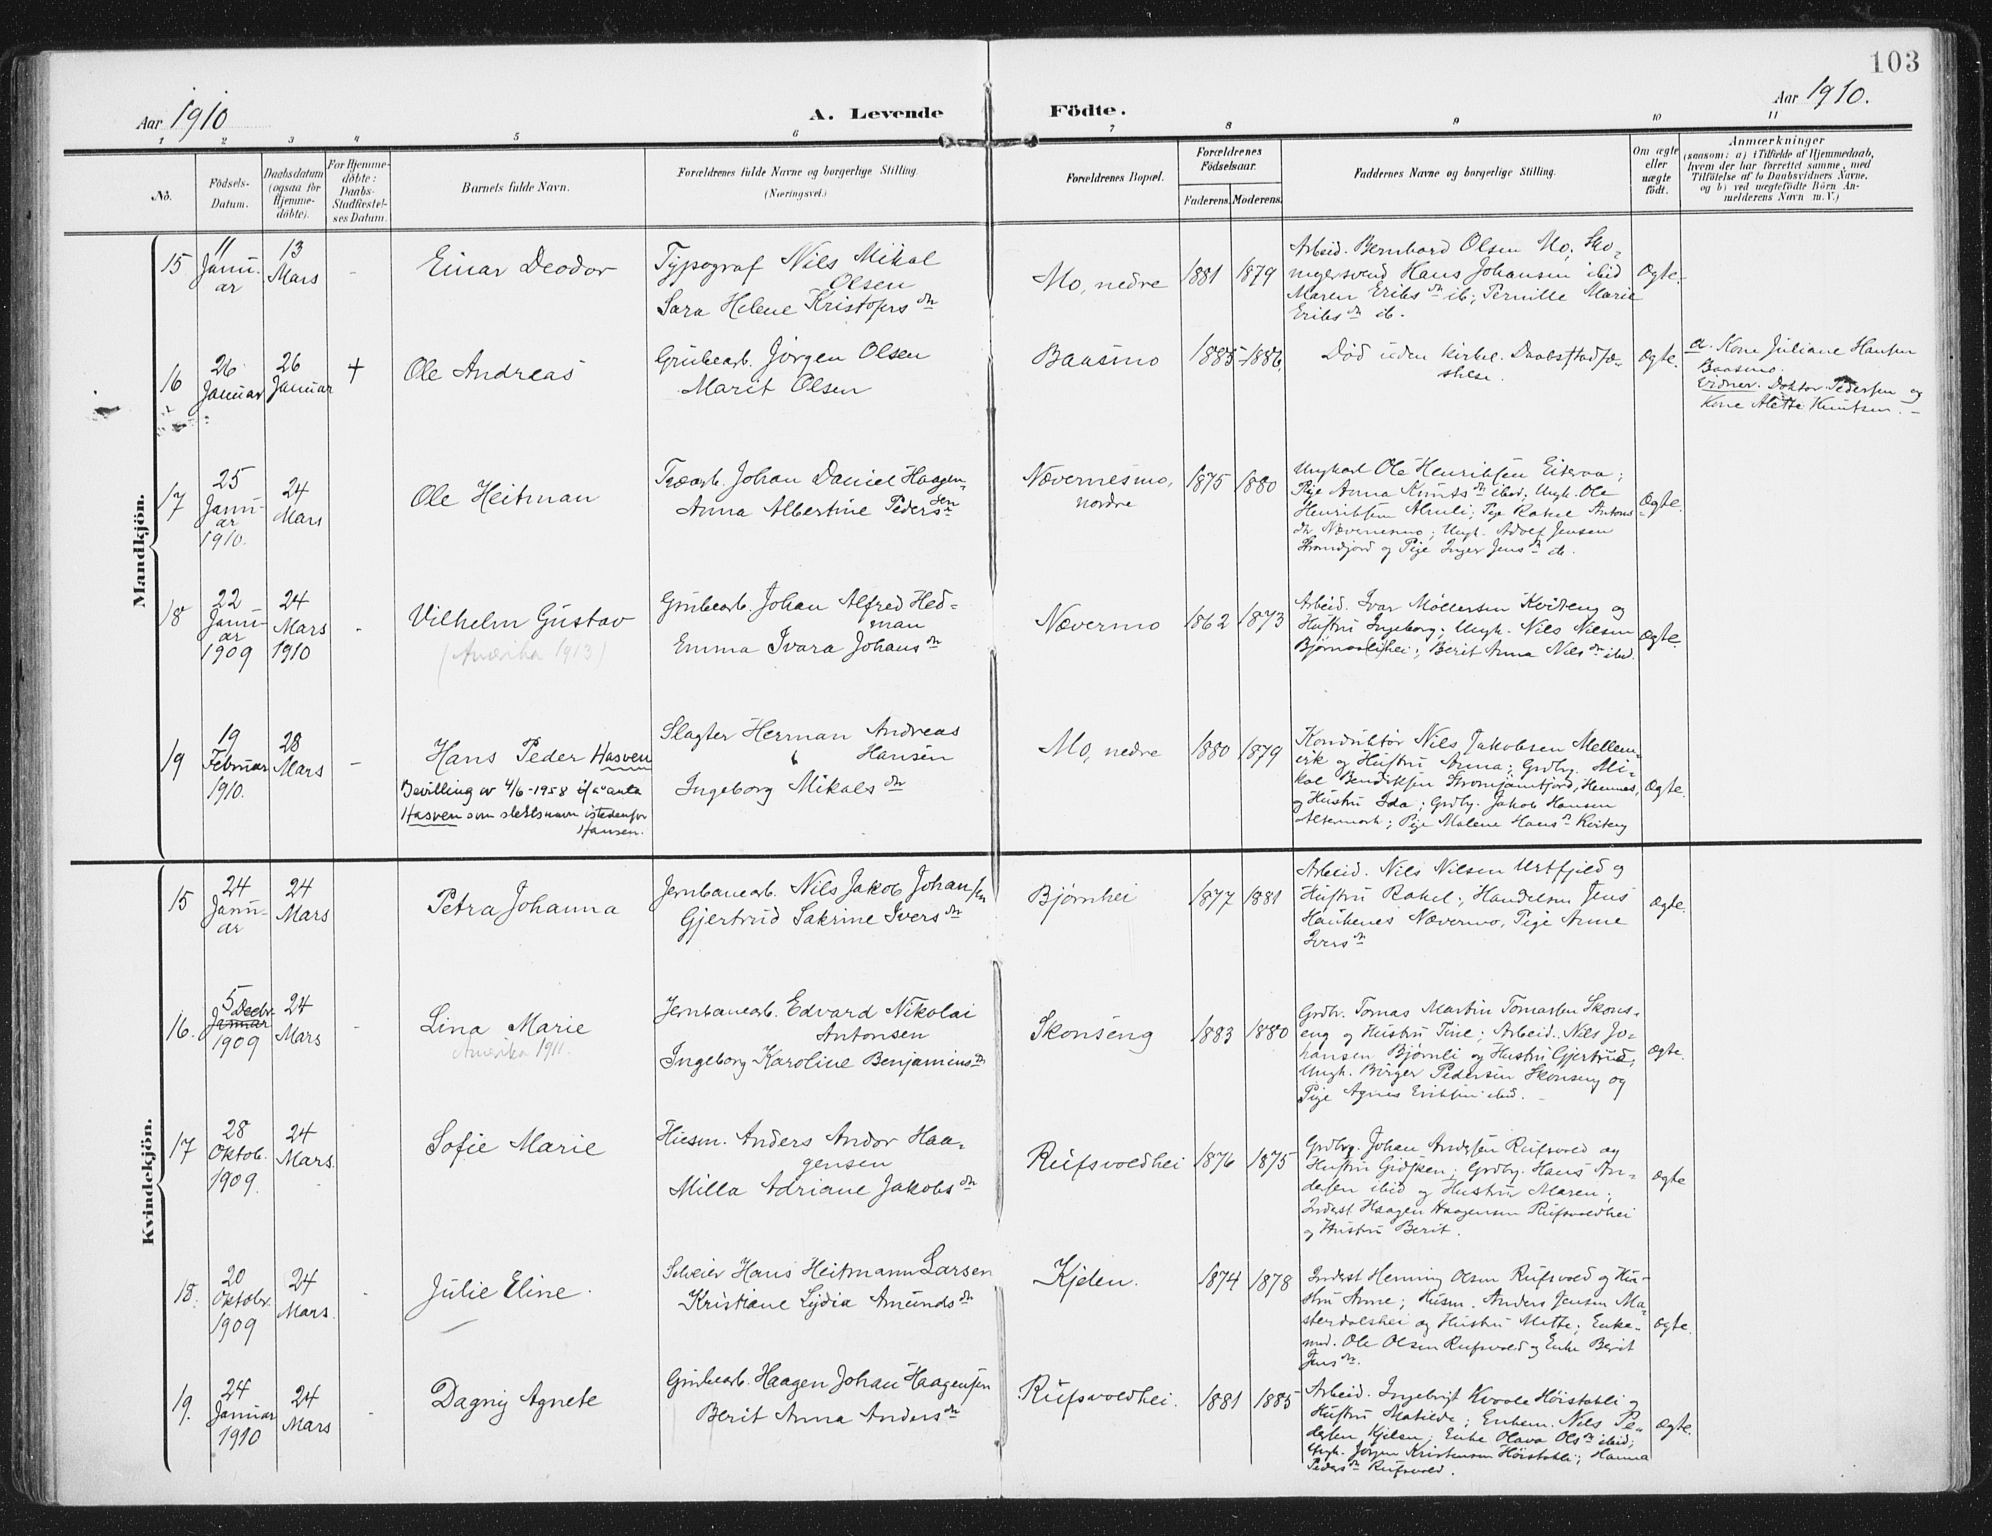 103
Aar 1910
A. Levende Födte.
Aar 1910.
1 2 3 4 5 6 7 8 9 10 11
No.
Födsels-
Datum.
Daabsdatum
(ogsaa for
Hjemme-
döbte).
For Hjemme-
döbte:
Daabs-
Stadfæstel-
ses Datum.
Barnets fulde Navn.
Forældrenes fulde Navne og borgerlige Stilling.
(Næringsvei.)
Forældrenes Bopæl.
Forældrenes
Födselsaar.
Faderens. Moderens.
Faddernes Navne og borgerlige Stilling.
Om ægte
eller
uægte
født.
Anmærkninger
(saasom: a) i Tilfælde af Hjemmedaab,
hvem der har forrettet samme, med
Tilføielse af to Daabsvidners Navne,
og b) ved uægtefödte Börn An-
melderens Navn m.V.)
Mandkjön.
15
11
Janu-
ar
13
Mars
-
Einar Deodor
Typograf Nils Mikal
Olsen
Sara Helene Kristofers dn
Mo, nedre
1881
1879
Arbeid. Bernhard Olsen Mo; Sko-
magersvend Hans Johansen ibid
Maren Eriks dn ib; Pernille Marie
Eriks dn ib.
Ægte.
16
26
Januar
26
Januar
+
Ole Andreas
Grubearb. Jörgen Olsen
Marit Olsen
Baasmo
1885
1886.
Död uden kirkel. Daabsstadfæ-
stelse.
Ægte.
a. Kone Juliane Hansen
Baasmo.
Vidner. Doktor Pedersen og
Kone Alette Knutsen.
17
25
Janu-
ar
1910.
24
Mars
Ole Heitman
Træarb. Johan Daniel Haagen-
sen
Anna Albertine Peders dn
Nævernesmo,
nordre
1875
1880
Ungkarl Ole Henriksen Eiteraa;
Pige Anna Knuts dn ibid; Ungk. Ole
Henriksen Almli; Pige Rakel Antons
dn Nævernesmo; Ungk. Adolf Jensen
Strandjord og Pige Inger Jens dn ib.
Ægte.
18
22
Janu-
ar
1909
24
Mars
1910
-
Vilhelm Gustav
(Amerika 1913)
Grubearb. Johan Alfred Hed-
man
Emma Ivara Johans dn
Nævermo
1862
1873
Arbeid. Ivar Möllersen Kviteng og
Hustru Ingeborg; Ungk. Nils Nilsen
hei; Berit Anna Nils dn ibid.
Ægte.
19
19
Februar
1910.
28
Mars
-
Hans Peder Hasven
Bevilling av 4/6-1958 til å anta
Hasven som slektsnavn istedenfor
Hansen.
Slagter Herman Andreas
Hansen
Ingeborg Mikals dn
Mo, nedre
1880
1879
Konduktör Nils Jakobsen Mellem-
vik og Hustru Anna; Grdbg. Mi-
kal Bendiksen Hemnes,
og Hustru Ida; Grdbg. Jakob Hansen
Altermark; Pige Malene Hans dn Kviteng
Ægte.
Kvindekjön.
15
24
Janu-
ar
24
Mars
Petra Johanna
Jernbanearb. Nils Jakob Johansen
Gjertrud Sakrine Ivers dn
Bjørnhei
1877
1881
Arbeid. Nils Nilsen Urtfjeld og
Hustru Rakel; Handelsm Jens
Haukenes Nævermo, Pige Anne
Ivers dn
Ægte.
16.
5 Decbr.
Januar
1909
24
Mars
-
Lina Marie
Amerika 1911.
Jernbanearb. Edvard Nikolai
Antonsen
Ingeborg Karoline Benjamins dn
Skonseng
1883
1880
Grdbr. Tomas Martin Tomassen Skons-
eng og Hustru Tine; Arbeid. Nils Jo-
hansen Bjørnli og Hustru Gjertrud;
Ungk. Birger Pedersen Skonseng og
Pige Agnes Eriksen ibid.
Ægte.
17
28
Oktob.
1909.
24
Mars.
Sofie Marie
Husm. Anders Andor Haa-
gensen
Milla Adriane Jakobs dn
Rufsvoldhei
1876
1875
Grdbrg. Johan Andersen Rufsvold og
Hustru Gidsken; Grdbg. Hans An-
dersen ibid og Hustru Maren;
Inderst Haagen Haagensen Rufsvoldhei
og Hustru Berit.
Ægte
18.
20
Oktobr.
1909
24
Mars.
-
Julie Eline.
Hans Heitmann Larsen
Kristiane Lydia Amunds dn
Kjelen.
1874
1878
Inderst Henning Olsen Rufsvold og Hu-
stru Anne; Husm. Anders Jensen Ma-
sterdalshei og Hustru Mette; Enke-
md. Ole Olsen Rufsvold og Enke Berit
Jens dn.
Ægte.
19.
24
Januar
1910
24
Mars
-
Dagny Agnete
Grubearb. Haagen Johan Haagensen
Berit Anna Anders dn
Rufsvoldhei.
1881
1885
Arbeid. Ingebrigt Kvoole Höistokli og
Hustru Matilde; Enkem. Nils Pe-
dersen Kjelen; Enke Olava Ols dn ibid;
Ungk. Jörgen Kristensen Höistokli; Hanna
Peders dn Rufsvold.
Ægte.